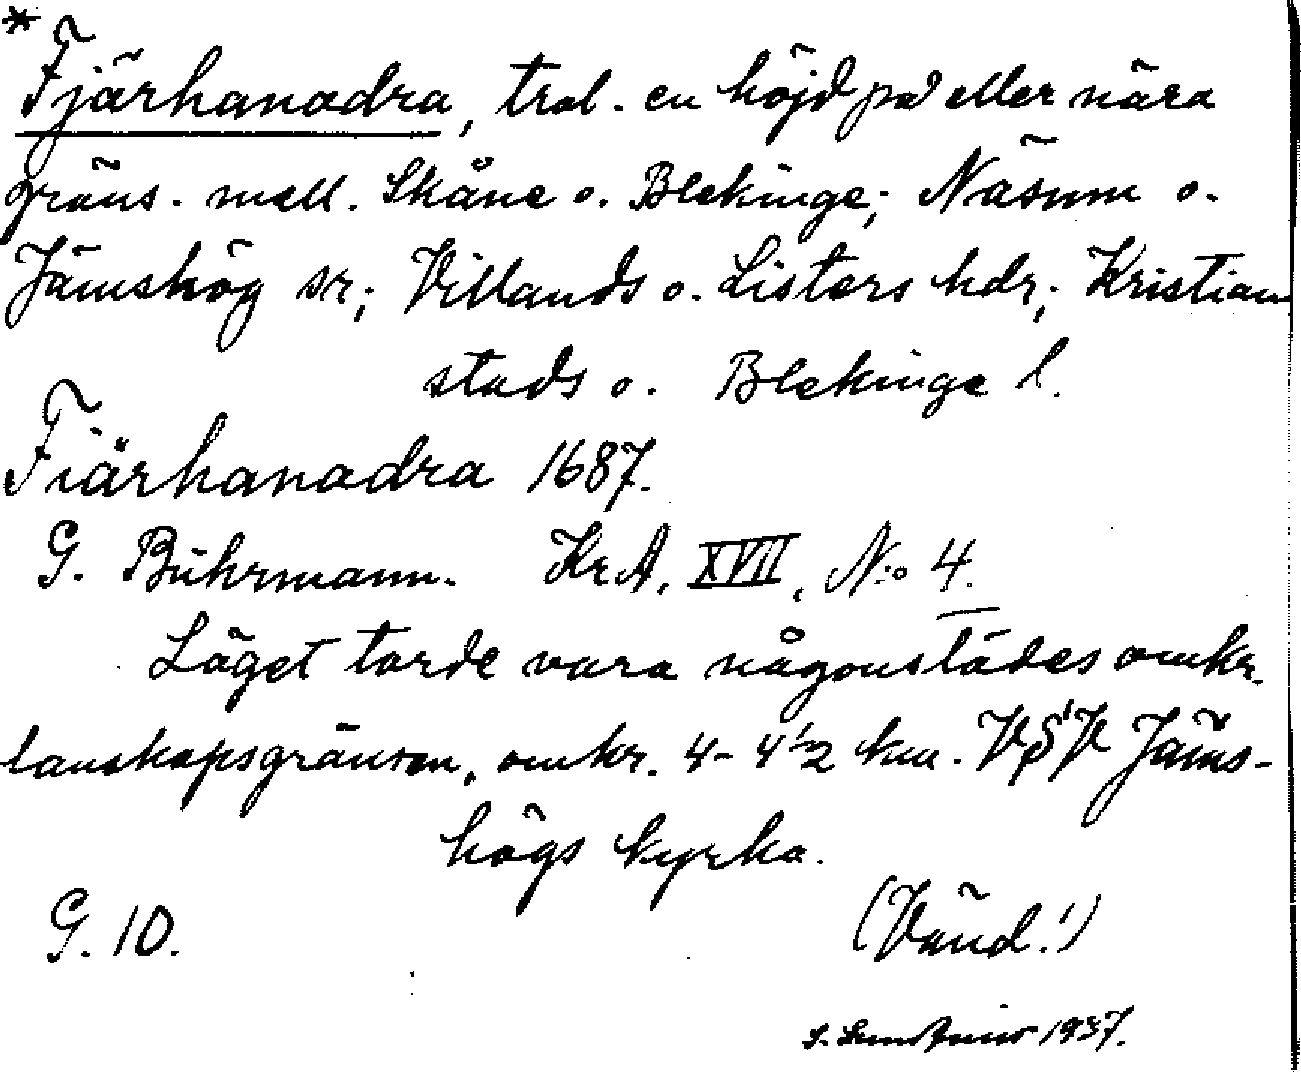 *
Fjärhanadra, trol. en höjd på eller nära
gräns. mell. Skåne o. Blekinge; Näsum o.
Jämshög sr; Villands o. Listers hdr; Kristian
stads o. Blekinge l.
Fiärhanadra 1687.
G. Buhrmann. Kr.A. XVII, N:o 4.
Läget torde vara någonstädes omkr.
lanskapsgränsen, omkr. 4-4½ km. VSV Jäms-
högs kyrka.
G. 10. (Vänd!)
1937.